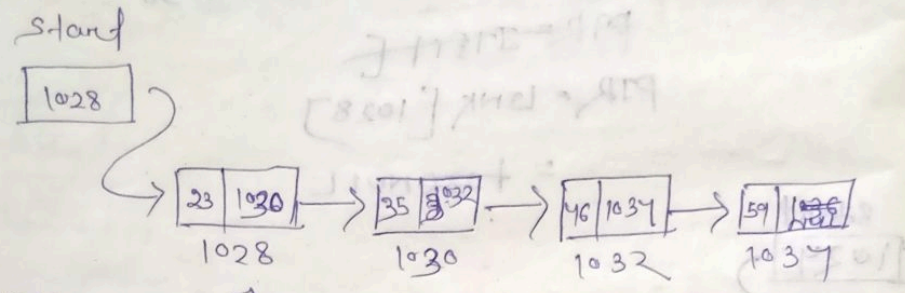 Start
1028
23 1030 35 1032 46 1034 59
1028 1030 1032 1034